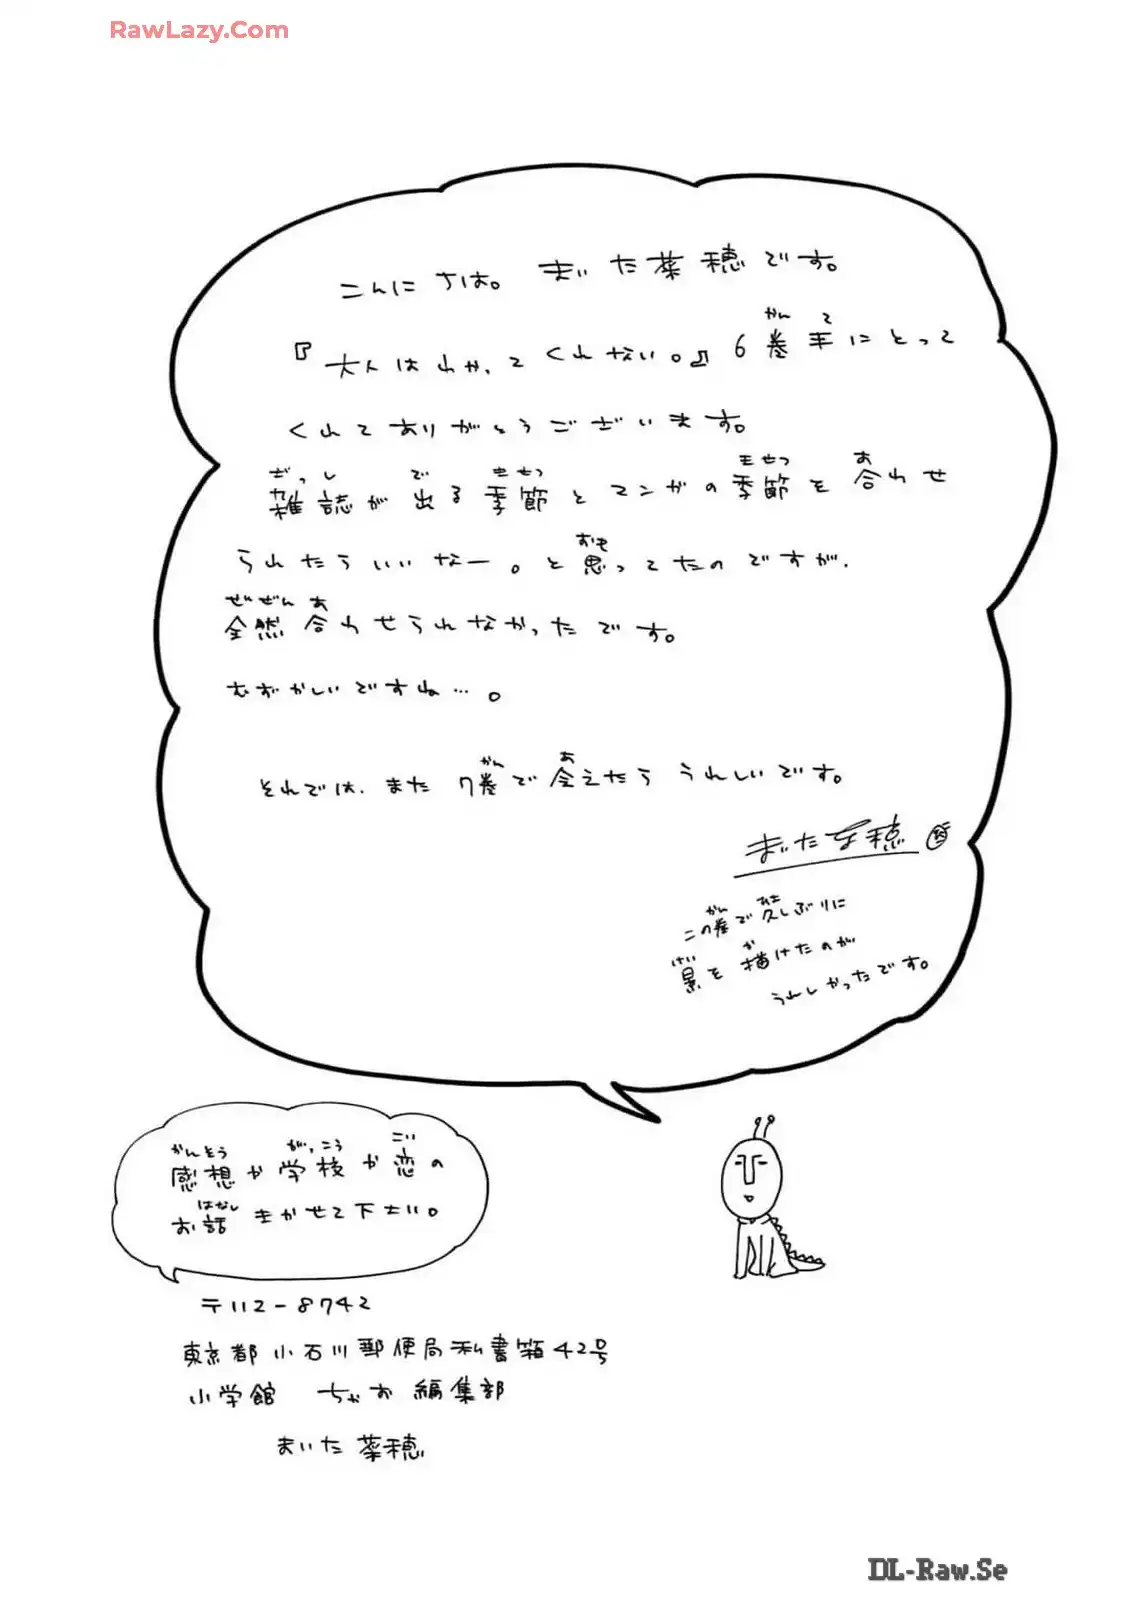 RawLazy.Com
こんにちは。まいた菜穂です。
『大人はわかってくれない。』6巻手にとって
くれてありがとうございます。
雑誌が出る季節とマンガの季節を合わせ
られたらいいなー。と思ってたのですが、
全然合わせられなかったです。
むずかしいですね…。
それでは、また7巻で会えたらうれしいです。
まいた菜穂
この巻で久しぶりに
景を描けたのが
うれしかったです。
感想や学校や恋の
お話きかせて下さい。
〒112-8742
東京都小石川郵便局私書箱42号
小学館 ちゃお編集部
まいた菜穂
DL-Raw.Se